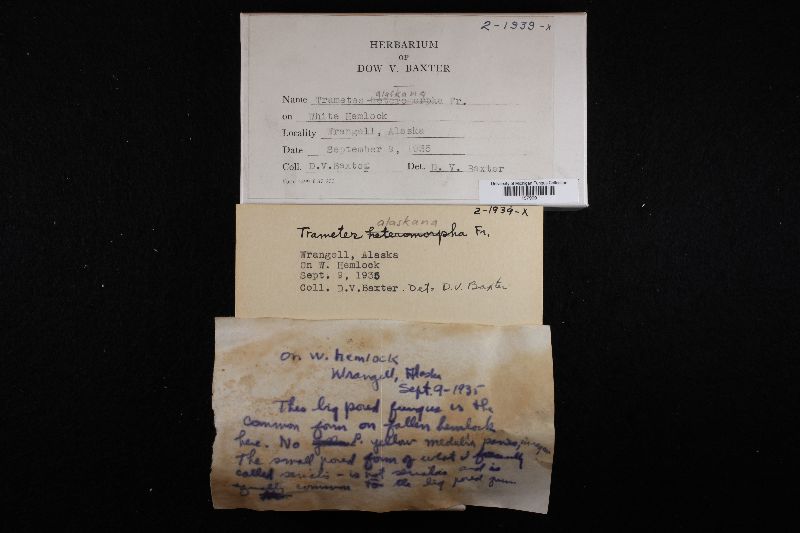 2-1939-x
HERBARIUM
OF
DOW V. BAXTER
alaskana
Name Trametes heteromorpha Fr.
on White Hemlock
Locality Wrangell, Alaska
Date September 9, 1935
Coll. D.V.Baxter Det. D. V. Baxter
University of Michigan Fungus Collection
2-1939-x
alaskana
Trametes heteromorpha Fr.
Wrangell, Alaska
On W. Hemlock
Sept. 9, 1935
Coll. D.V.Baxter. Det. D.V. Baxter
On W. hemlock
Wrangell, Alaska
Sept. 9-1935
This big pored fungus is the
common form on fallen hemlock
here. No P. yellow medulla
The small pored form of what I formerly
called serialis - is not serialis and is
equally common to the big pored form